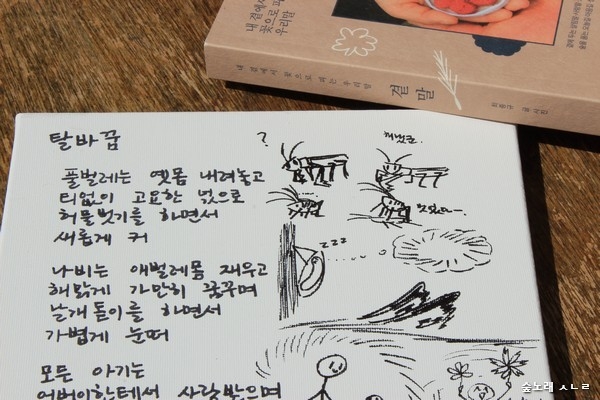 내 곁에서
꽃으로 피
우리말
내 곁에서 꽃으로 피는 우리말
곁말
최종규 글 사진
탈바꿈
?
풀벌레는 옛몸 내려놓고
티없이 고요한 넋으로
허물벗기를 하면서
새롭게 커
zzz
나비는 애벌레몸 재우고
해맑게 가만히 꿈꾸며
날개돋이를 하면서
가볍게 눈떠
모든 아기는
어버이한테서 사랑받으며
숲노래 ㅅㄴㄹ